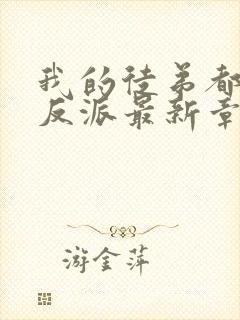 我的徒弟都
反派最新章
游金萍